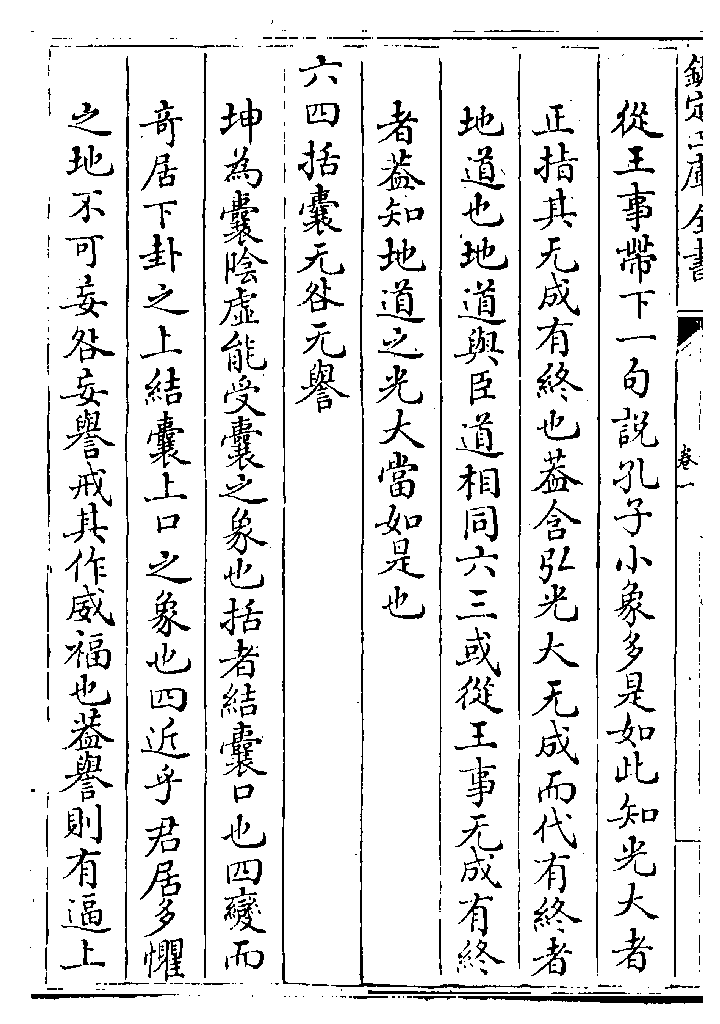 欽定四庫全書
卷一
從王事帶下一句說孔子小象多是如此知光大者
正指其无成有終也葢含弘光大无成而代有終者
地道也地道與臣道相同六三或從王事无成有終
者葢知地道之光大當如是也
六四括囊无咎无譽
坤為囊陰虛能受囊之象也括者結囊口也四變而
竒居下卦之上結囊上口之象也四近乎君居多懼
之地不可妄咎妄譽戒其作威福也葢譽則有逼上